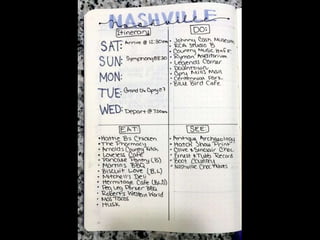 NASHVILLE
Itinerary
SAT: Arrive @ 12:30am
SUN: Symphony@2:30
MON:
TUE: Grand Ole Opry@7
WED: Depart @ 7:20am
DO:
Johnny Cash Museum
RCA Studio B
Country Music H of F
Ryman Auditorium
Legends Corner
Downtown
Opry Mills Mall
Centennial Park
Blue Bird Cafe
EAT:
Hattie B's Chicken
The Pharmacy
Arnold's Country Kitch
Loveless Cafe
Pancake Pantry (B)
Martin's BBQ
Biscuit Love (B,L)
Mitchell's Deli
Hermitage Cafe
Peg Leg Porker BBQ
Robert's Western World
Mas Tacos
Husk
SEE:
Antique Archaeology
Hatch Show Print
Olive & Sinclair Choc
Ernest Tubb Record
Boot Country
Nashville